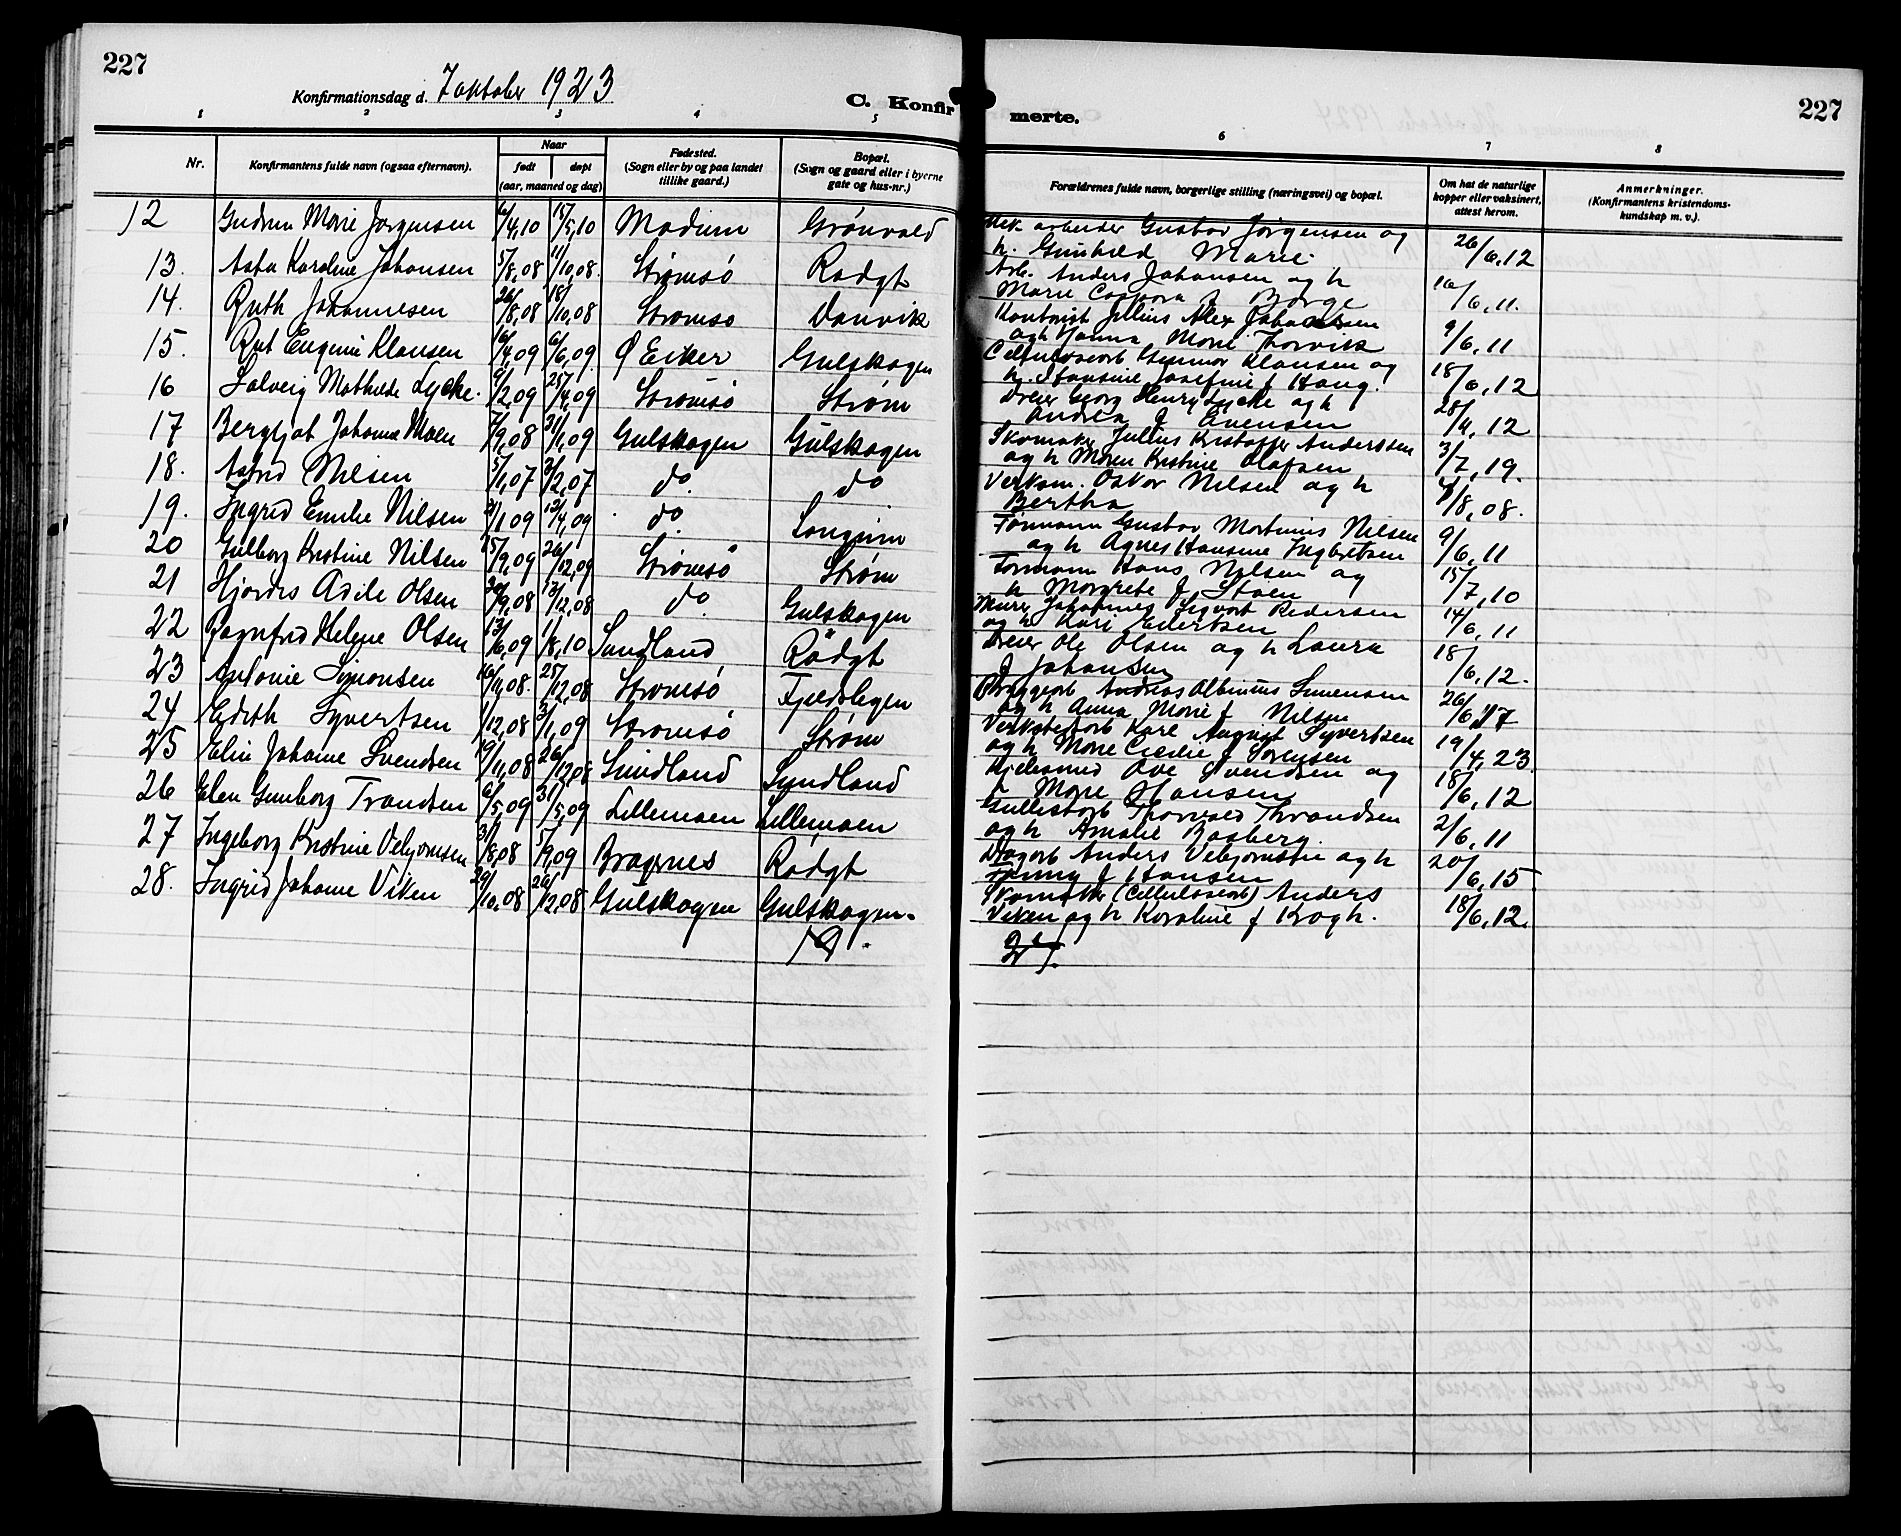 227
Konfirmationsdag d. 7 oktober 1923
C. Konfir
merte.
227
1 2 3 4 5 6 7 8
Nr.
Konfirmantens fulde navn (ogsaa efternavn).
Naar
født døpt
(aar, maaned og dag)
Fødested.
(Sogn eller by og paa landet
tillike gaard.)
Bopæl.
(Sogn og gaard eller i byerne
gate og hus-nr.)
Forældrenes fulde navn, borgerlige stilling (næringsvei) og bopæl.
Om hat de naturlige
kopper eller vaksinert,
attest herom.
Anmerkninger.
(Konfirmantens kristendoms-
kundskap m. v.).
12 Gudrun Marie Jørgensen 6/4,10 15/5,10 Modum Grönvold Mek. arbeider Gustav Jörgensen og
h. Gunhild Marie. 26/6,12
13. Asta Karoline Johansen 5/8,08 11/10,08. Strömsö Rødgt Arb. Anders Johansen og h
Marie f Borge 10/6,11.
14. Ruth Johannesen 26/8,08 18/10,08 Strömsö Danvik Kontorist Julius Alex Johannesen
og h Hanna Marie Thorvik 9/6,11
15. Rut Eugenie Klausen 16/4,09 6/6,09. Ø Eiker Gulskogen Cellulosearb Gunnar Klausen og
h. Hansine Josefine f Haug. 18/6,12
16 Solveig Mathilde Lycke. 9/2,09 25/4,09 Strömsö Strøm Dreier Georg Henry Lycke og h
Andrea f Evensen 28/4,12
17 Bergljot Johanne Moen 7/9,08 31/1,09 Gulskogen Gulskogen Skomaker Julius Kristoffer Anderssen
og h Maren Kristine Olafsen 3/7,19.
18. Astrid Nilsen 5/1,07 3/2,07 do do Verksm. Oskar Nilsen og h
Bertha /8,08.
19. Ingrid Emilie Nilsen 2/1 09 12/4,09 do Longum Formann Gustav Martinius Nilsen
og h Agnes Hansine Ingbretsen 9/6,11
20 Gulborg Kristine Nilsen 15/9,09 26/12,09 Strömsö Strøm Formann Hans Nilsen og
h Margrete f Stoen 15/7,10
21 Hjordis Adile Olsen 30/9,08 13/12,08 do Gulskogen Murer Johannes Sigvart Pedersen
og h Kari Eilertsen 14/6,11
22 Ragnfrid Helene Olsen 13/6,09 1/8,10 Sundland Rödgt Dreier Ole Olsen og h Laura
f Johansen 18/6,12.
23 Antonie Simonsen 16/11,08. 25/12,08 Strömsö Fjeldslegen Bryggearb Andreas Albinius Simensen
og h Anna Marie f Nilsen 26/6,17
24 Edith Syvertsen 1/12,08 3/1,09 Strömsö Strøm Verkstedarb Karl August Syvertsen
og h Marie Cicilie f Sörensen 19/4,23.
25 Elin Johanne Svendsen 19/11,08 26/12,08 Sundland Syndland Kjelesmed Ove Svendsen og
h Marie Hansen 18/6,12
26 Elen Gunborg Trondsen 6/5,09 31/5,09 Lillemoen Lillemoen Gullistarb Thorvald Throndsen
og h Amalie Basberg. 2/6,11
27 Ingeborg Kristine Vebjornsen 31/8,08 5/9,09 Bragernes Rödgt Dagarb Anders Vebjornsen og h
Fanny f Hansen 20/6,15
28. Ingrid Johanne Viken 29/10,08 26/12,08 Gulskogen Gulskogen. Skomaker (Celluloseearb) Anders
Viken og h Karoline f Krogh. 18/6,12.